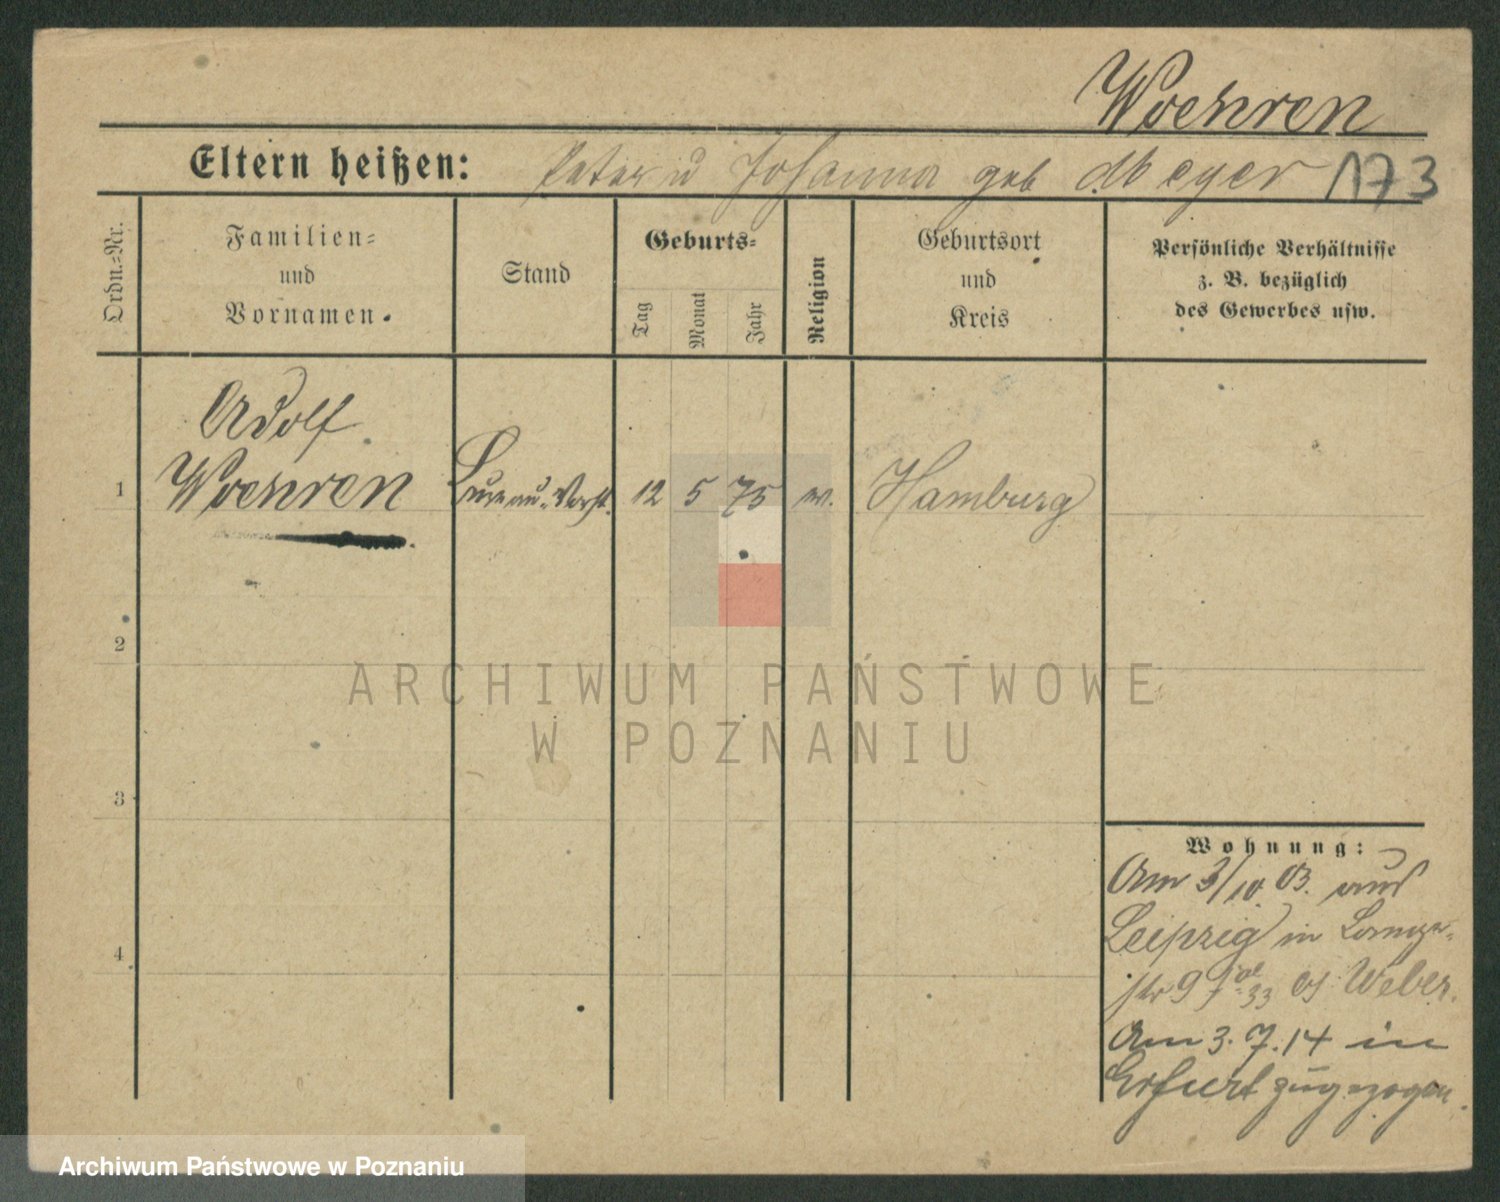 Woehren
Eltern heißen: Peter u Johanna geb Meyer 173
Ordn.-Nr.
Familien-
und
Vornamen.
Stand
Geburts-
Tag
Monat
Jahr
Religion
Geburtsort
und
Kreis
Persönliche Verhältnisse
z. B. bezüglich
des Gewerbes usw.
Adolf
1 Woehren 12 5 75 ev. Hamburg
2
3
4
Wohnung:
Am 3/10. 03. aus
Leipzig in
str 9 bei Weber.
Am 3. 7. 14 in
Erfurt zugezogen.
ARCHIWUM PAŃSTWOWE
W POZNANIU
Archiwum Państwowe w Poznaniu